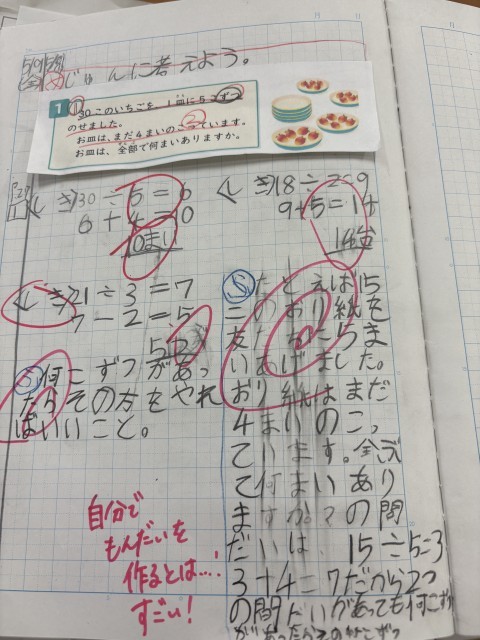 めじゅんに考えよう。
1 30このいちごを、1皿に5こずつ
のせました。
お皿は、まだ4まいのこっています。
お皿は、全部で何まいありますか。
P.27
1
く き)30÷5=6
6+4=10
10まい
く き)18÷2=9
9+5=14
14台
く き)21÷3=7
7-2=5
ふ何こずつがあっ
たらその方をやれ
ばいいこと。
ふたとえば15
このおり紙を
友だちに5ま
いあげました。
おり紙はまだ
4まいのこっ
ています。全ぶ
で何まいあり
ますか?の問
だいは、15÷5=3
3+4=7だから2つ
の問だいがあっても何こずつ
自分で
もんだいを
作るとは…!
すごい!